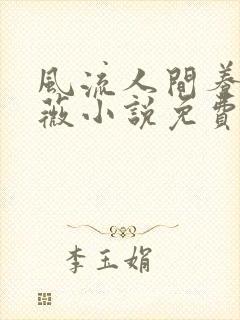 風流人間養
薇小説免費
李玉娟